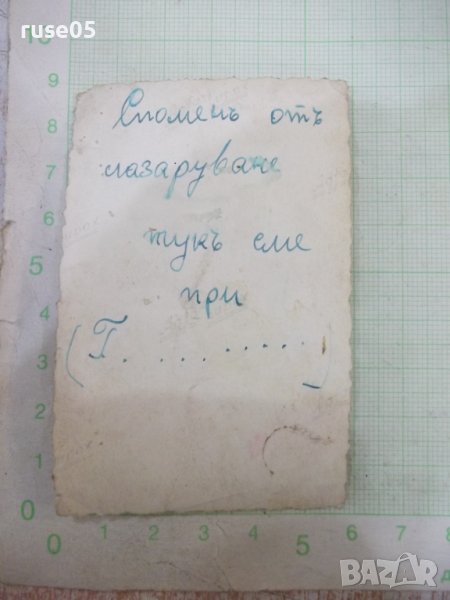 ruse05
Споменъ отъ
лазаруване
тукъ сме
при
(Г. ..........)
10
9
8
7
6
5
4
3
2
1
0
0 1 2 3 4 5 6 7 8
BAZAR